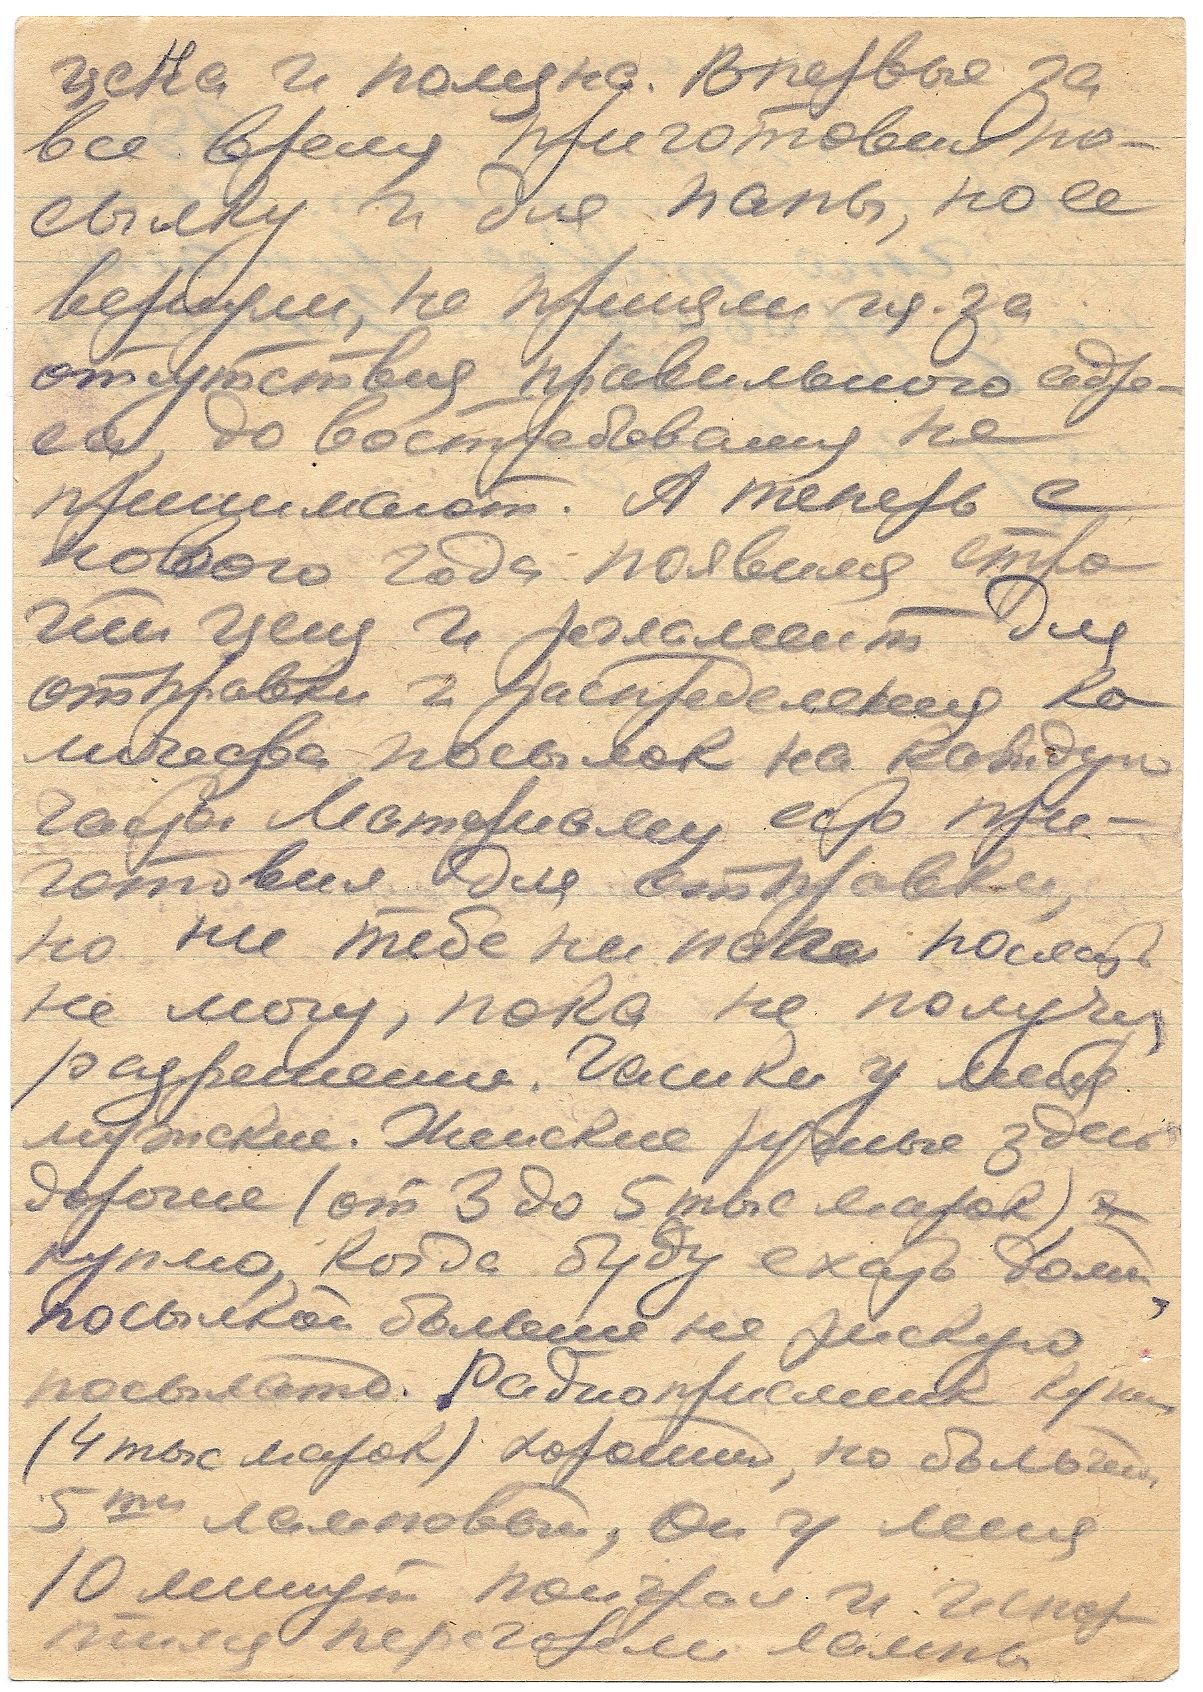 цена и полезна. Впервые за
все время приготовил по-
сылку и для папы, но ее
вернули, не приняли из-за
отсутствия правильного адре-
са, до востребования не
принимают. А теперь с
нового года появился стро
гий ценз и регламент для
отправки и распределения ко
личества посылок на каждую
часть. Материалу есть при-
готовил для отправки,
но ни тебе ни папе послать
не могу, пока не получу
разрешения. Часики у меня
мужские. Женские ручные здесь
дорогие (от 3 до 5 тыс марок)
куплю, когда буду ехать домой,
посылкой больше не рискую
посылать. Радиоприемник купил
(4 тыс марок) хороший, но большой
5ти ламповый, он у меня
10 минут поиграл и испор
тился перегорели лампы